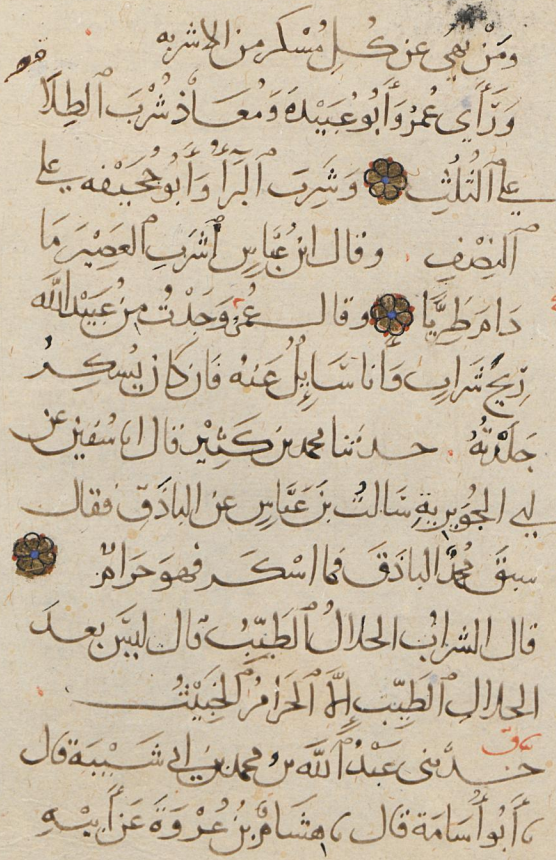 ومَنْ نهَى عن كُلِّ مُسْكرٍ من الاشربه
وَرَأَى عُمَرُ وَأَبُو عُبَيْدَةَ وَمُعَاذٌ شُرْبَ الطِلَا
على الثُلُثِ وَشَرِبَ البَرَأُ وَأَبُو جُحَيْفه على
النِصْفِ وقال ابنُ عَبَّاسٍ اشْرَبِ العَصِيْرَ مَا
دَامَ طَرِيًّا وقال عُمَرُ وَجَدْتُ مِنْ عُبَيْدِ اللَّه
رِيحَ شَرَابٍ وَانا سَايِلٌ عَنهُ فَان كَانَ يُسْكِرُ
جَلَدْتُهُ حدثنا محمد بن كَثِيْرٍ قال انا سُفين عن
ابي الجُوَيرِيةِ سَالتُ بنَ عَبَّاسٍ عن الباذَقِ فقال
سبقَ مُحمَّدٌ الباذَقَ فما اسْكَر فهوَ حَرَامٌ
قال الشرابُ الحلالُ الطَيِّبُ قال ليسَ بعدَ
الحلالِ الطيِّبِ إلَّا الحَرَامُ الخَبِيْثُ
حدَّثنى عَبْدُ اللَّه بن محمد بن ابي شَيْبَةَ قال
نا أَبُو أُسَامَةَ قال نا هشَامُ بْنُ عُرْوَةَ عَنْ أَبِيْهِ